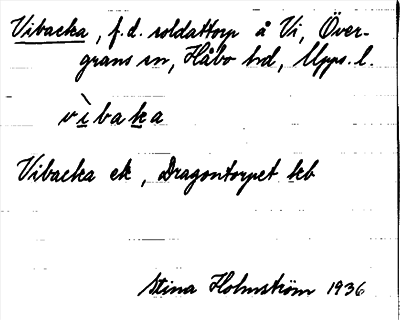 Vibacka, f.d. soldattorp å Vi, Över-
grans sn, Håbo hd, Upps. l.
vìbaka
Vibacka ek, Dragontorpet kb
Stina Holmström 1936